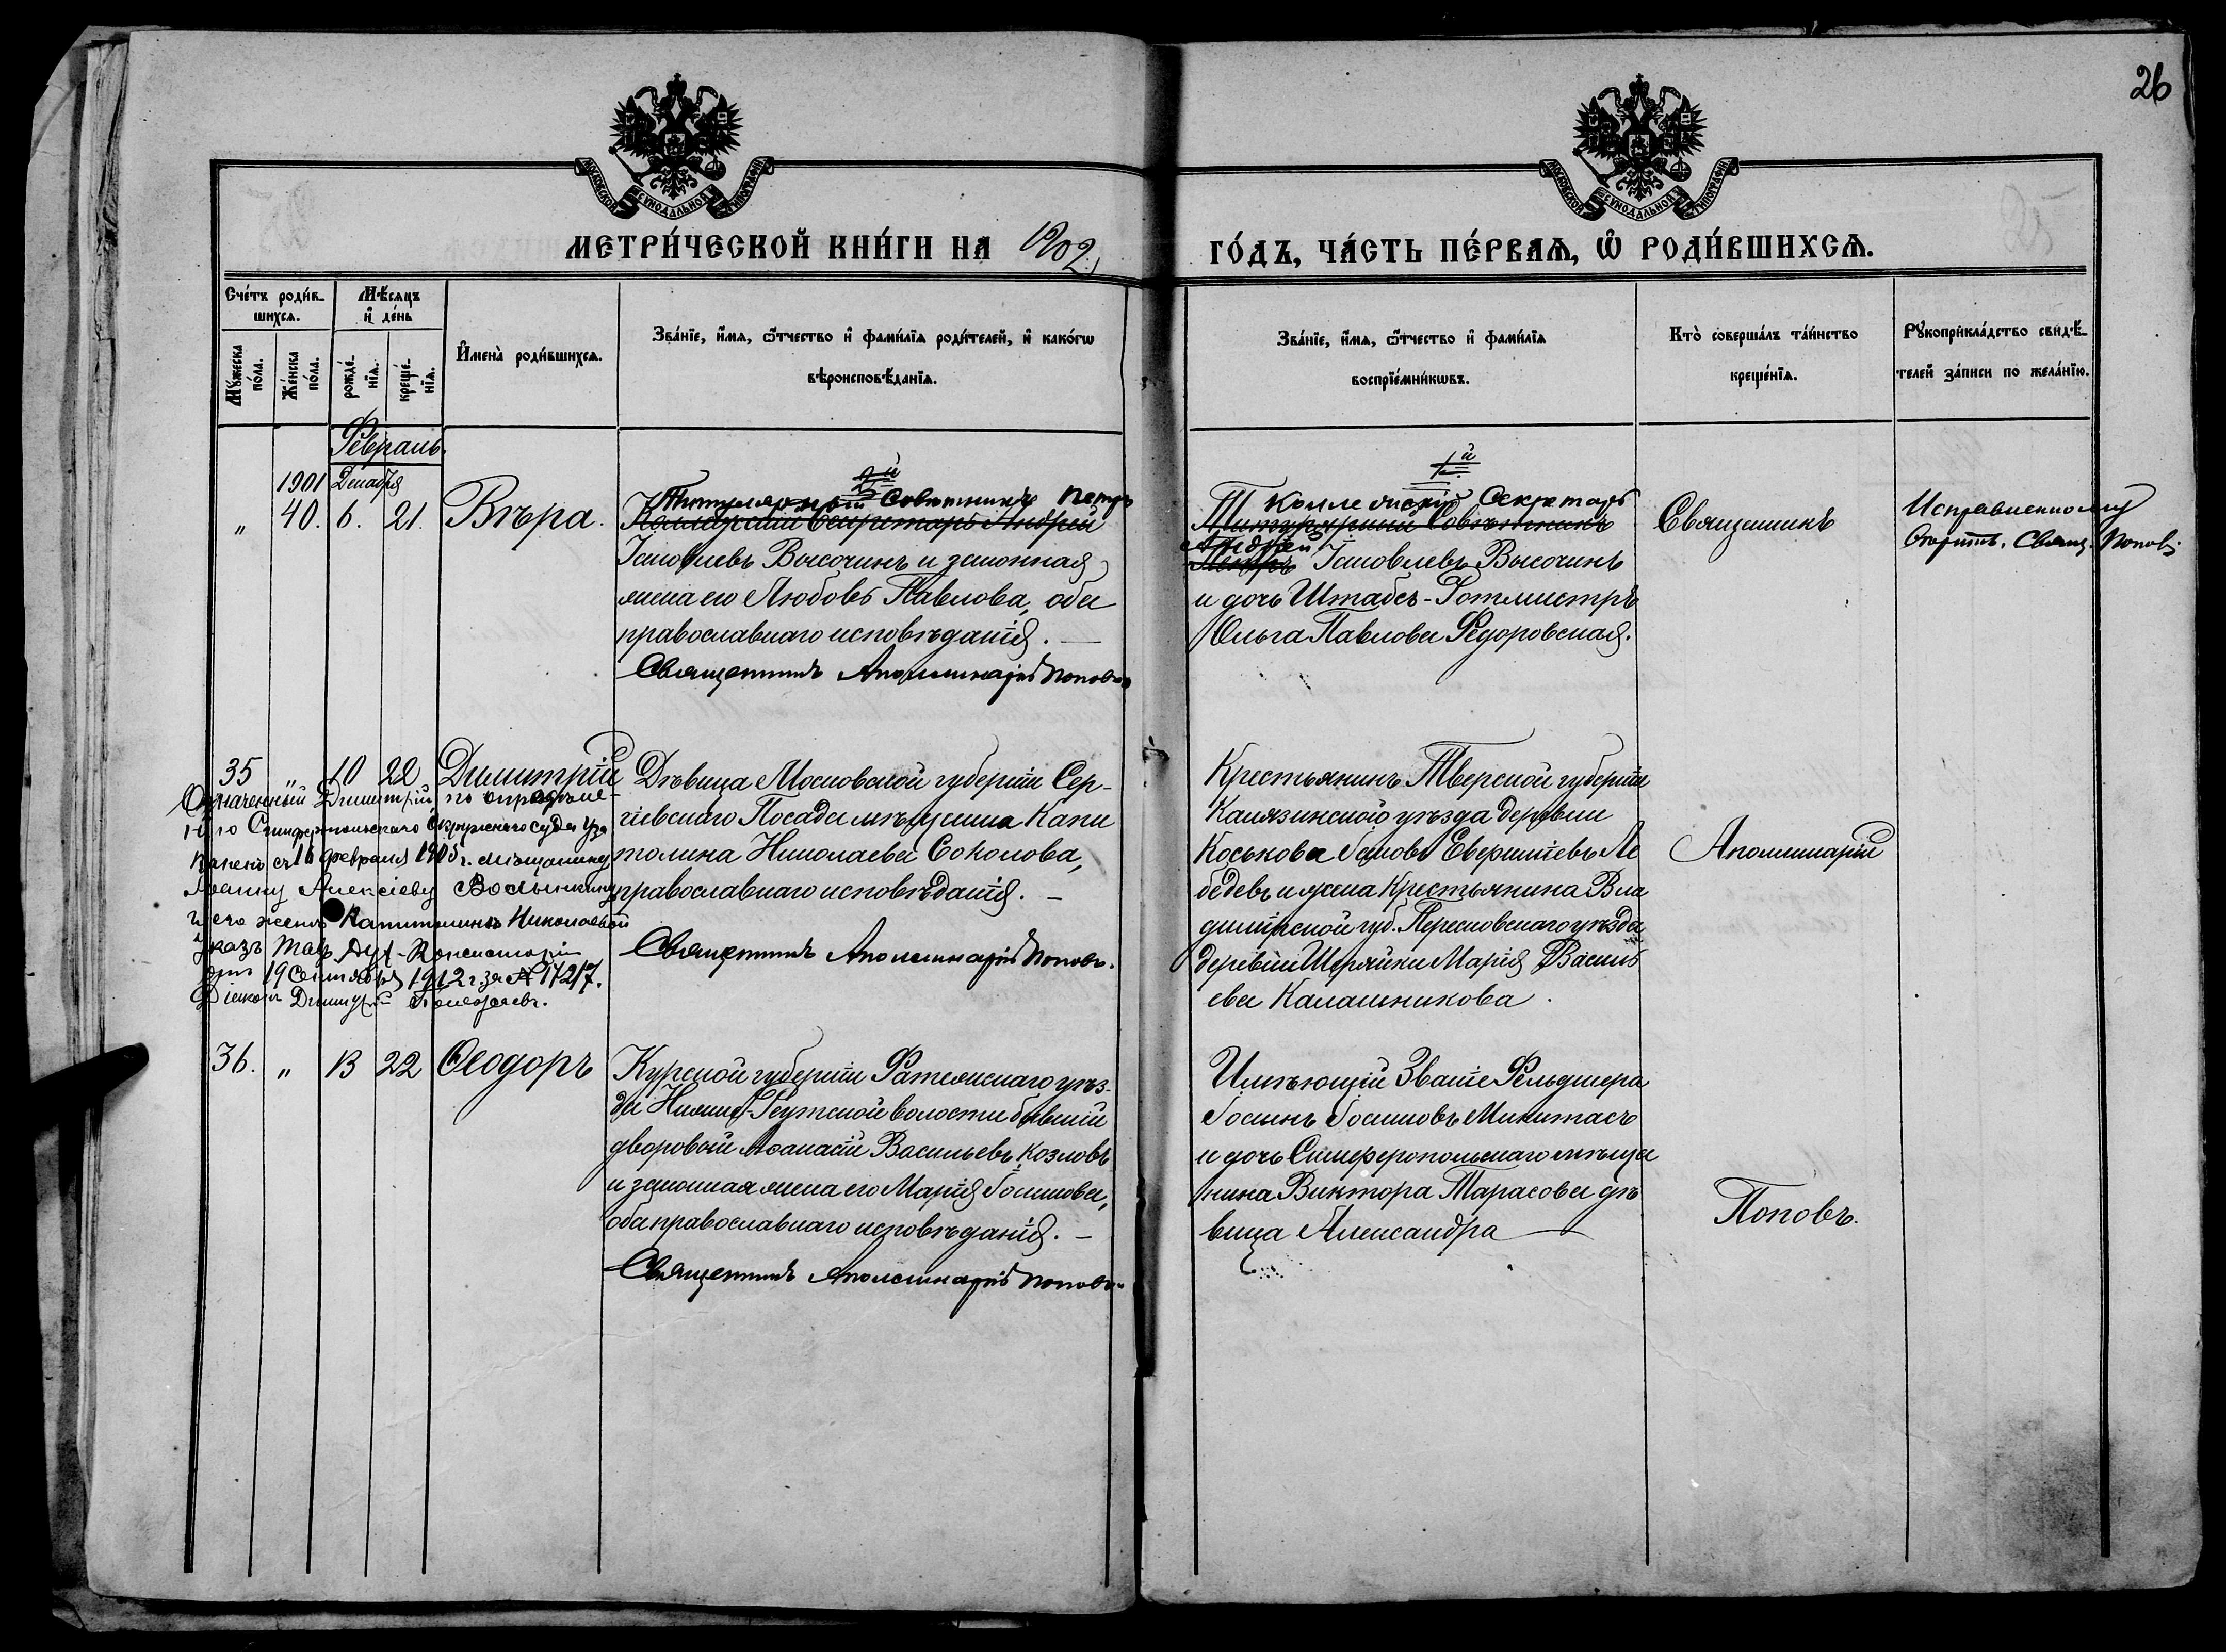 26
МОСКОВСКОЙ СѴНОДАЛЬНОЙ ТИПОГРАФІИ
МОСКОВСКОЙ СѴНОДАЛЬНОЙ ТИПОГРАФІИ
МЕТРИ́ЧЕСКОЙ КНИ́ГИ НА 1902
ГО́ДЪ, ЧА́СТЬ ПЕ́РВАѦ, Ѽ РОДИ́ВШИХСѦ.
Сче́тъ роди́в-
шихсѧ.
Мѣ́сѧцъ
и҆ де́нь
Мꙋ́жеска
по́ла.
Же́нска
по́ла.
рожде́-
нїѧ.
креще́-
нїѧ.
И҆мена̀ роди́вшихсѧ.
Зва́нїе, и҆́мѧ, ѻ҆́тчество и҆ фами́лїѧ роди́телей, и҆ како́гѡ
вѣроисповѣ́данїѧ.
Зва́нїе, и҆́мѧ, ѻ҆́тчество и҆ фами́лїѧ
воспрїе́мникѡвъ.
Кто̀ соверша́лъ та́инство
креще́нїѧ.
Рꙋкоприкла́дство свидѣ́-
телей за́писи по жела́нїю.
Февраль.
1901 Декабря
„ 40. 6. 21. Вѣра.
2й
Титулярный Совѣтникъ Петръ
Коллежскій Секретарь Андрей
Іаковлевъ Высочинъ и законная
жена его Любовь Павлова, оба
православнаго исповѣданія. —
Священникъ Аполлинарій Поповъ
1й
Коллежскій Секретарь
Титулярный Совѣтникъ
Андрей
Петръ Іаковлевъ Высочинъ
и дочь Штабсъ-Ротмистра
Ольга Павлова Федоровская.
Священникъ
Исправленному
вѣрить. Свящ. Поповъ
35 „ 10 22 Димитрій
Означенный Димитрій, по опредѣле-
нію Симферопольскаго Окружнаго Суда уза
коненъ 16 февраля 1905 г. мѣщанину
Іоанну Алексіеву
и его женѣ Капитолинѣ Николаевой
Указъ Тавр. Дух. Консисторіи
отъ 19 Сентября 1912 г. за № 17217.
Діаконъ Димитрій
Дѣвица Московской губерніи Сер-
гіевскаго Посада мѣщанка Капи
толина Николаева Соколова,
православнаго исповѣданія. —
Священникъ Аполлинарій Поповъ.
Крестьянинъ Тверской губерніи
Калязинскаго уѣзда деревни
Коськова Іаковъ Ле
бедевъ и жена Крестьянина Вла
димірской губ. Переславскаго уѣзда
деревни Маріа Василь
ева Калашникова.
Аполлинарій
36. „ 13 22 Ѳеодоръ
Курской губерніи уѣз-
да Нижне-Реутской волости бывшій
дворовый Аѳанасій Васильевъ Козловъ
и законная жена его Марія Іосифова,
оба православнаго исповѣданія. —
Священникъ Аполлинарій Поповъ
Имѣющій Званіе Фельдшера
Іосифъ Іосифовъ Микитасъ
и дочь Симферопольскаго мѣща
нина Виктора Тарасова дѣ
вица Александра
Поповъ.